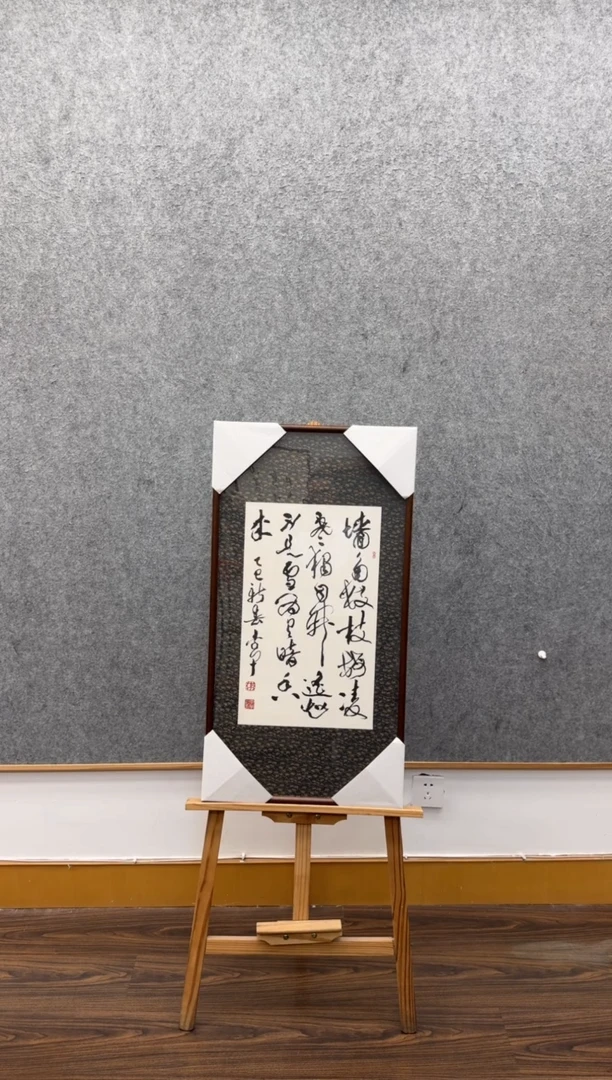 墙角數枝梅凌
寒獨自開遥知
不是雪為有暗香
来 乙巳新春